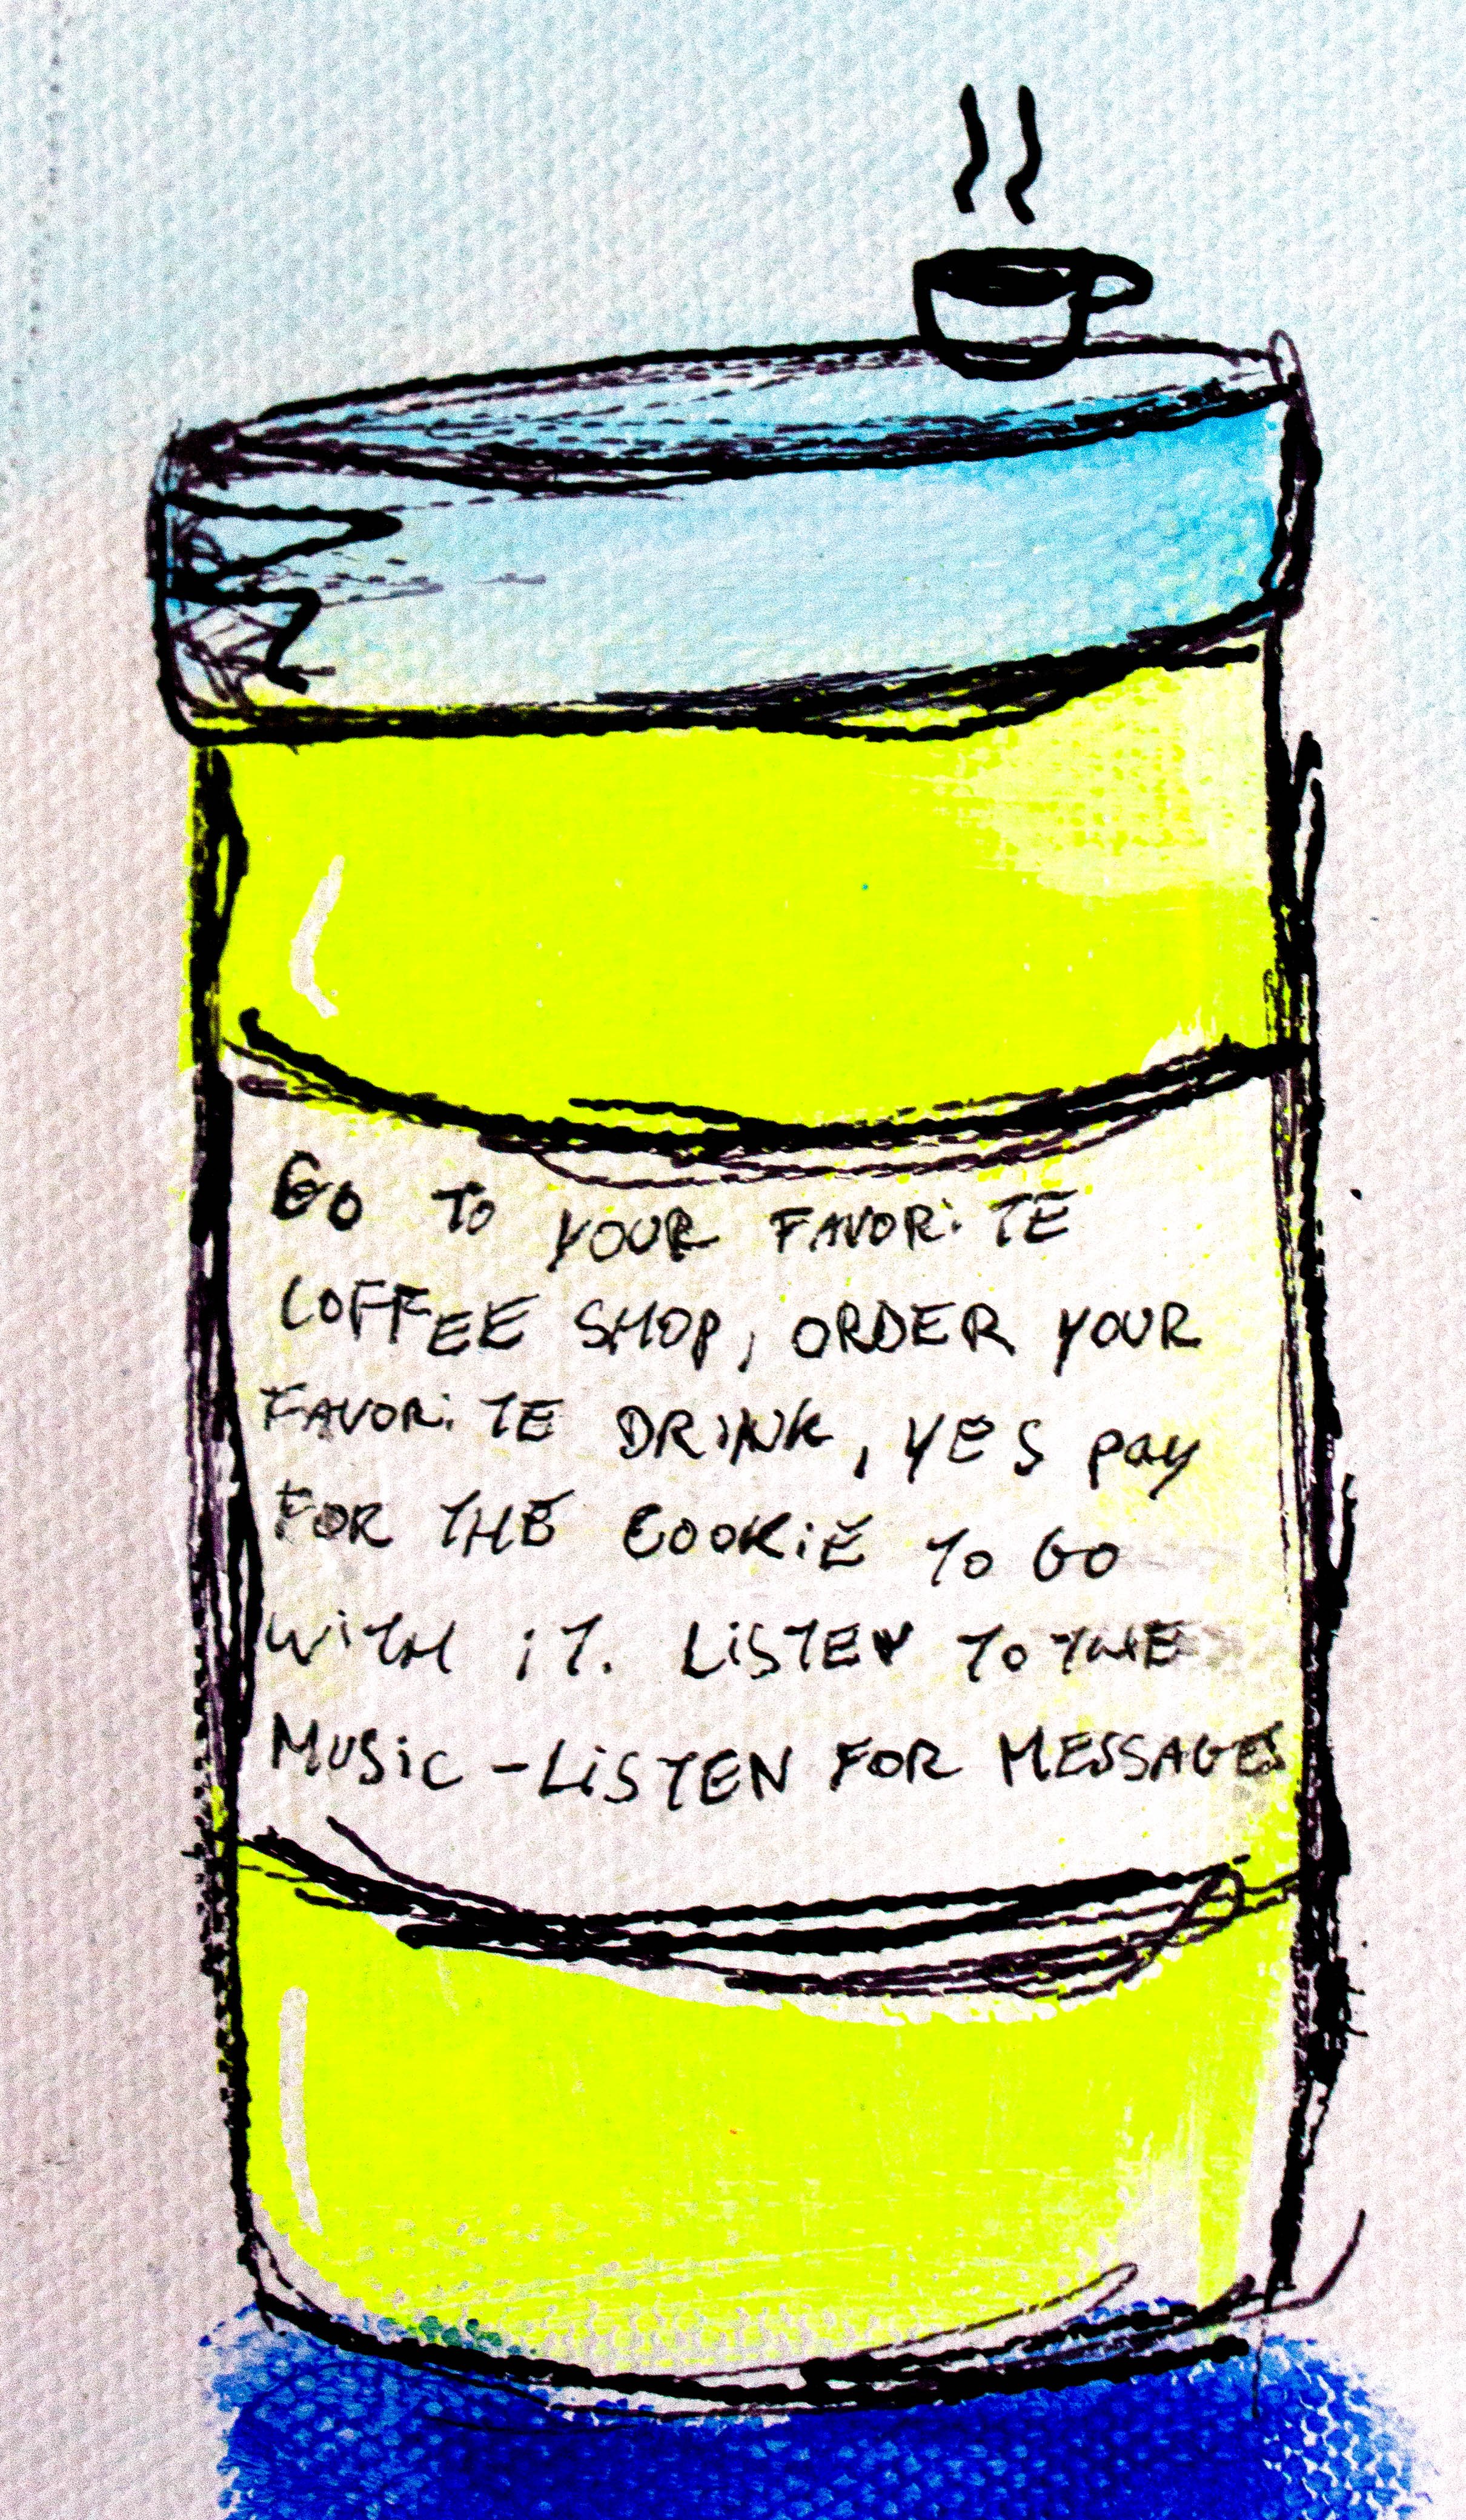 GO TO YOUR FAVORiTE
COFFEE SHOP, ORDER YOUR
FAVORiTE DRiNK, YES pay
FOR THE COOKiE TO GO
WiTH iT. LiSTEN TO THE
MUSiC - LiSTEN FOR MESSAGES